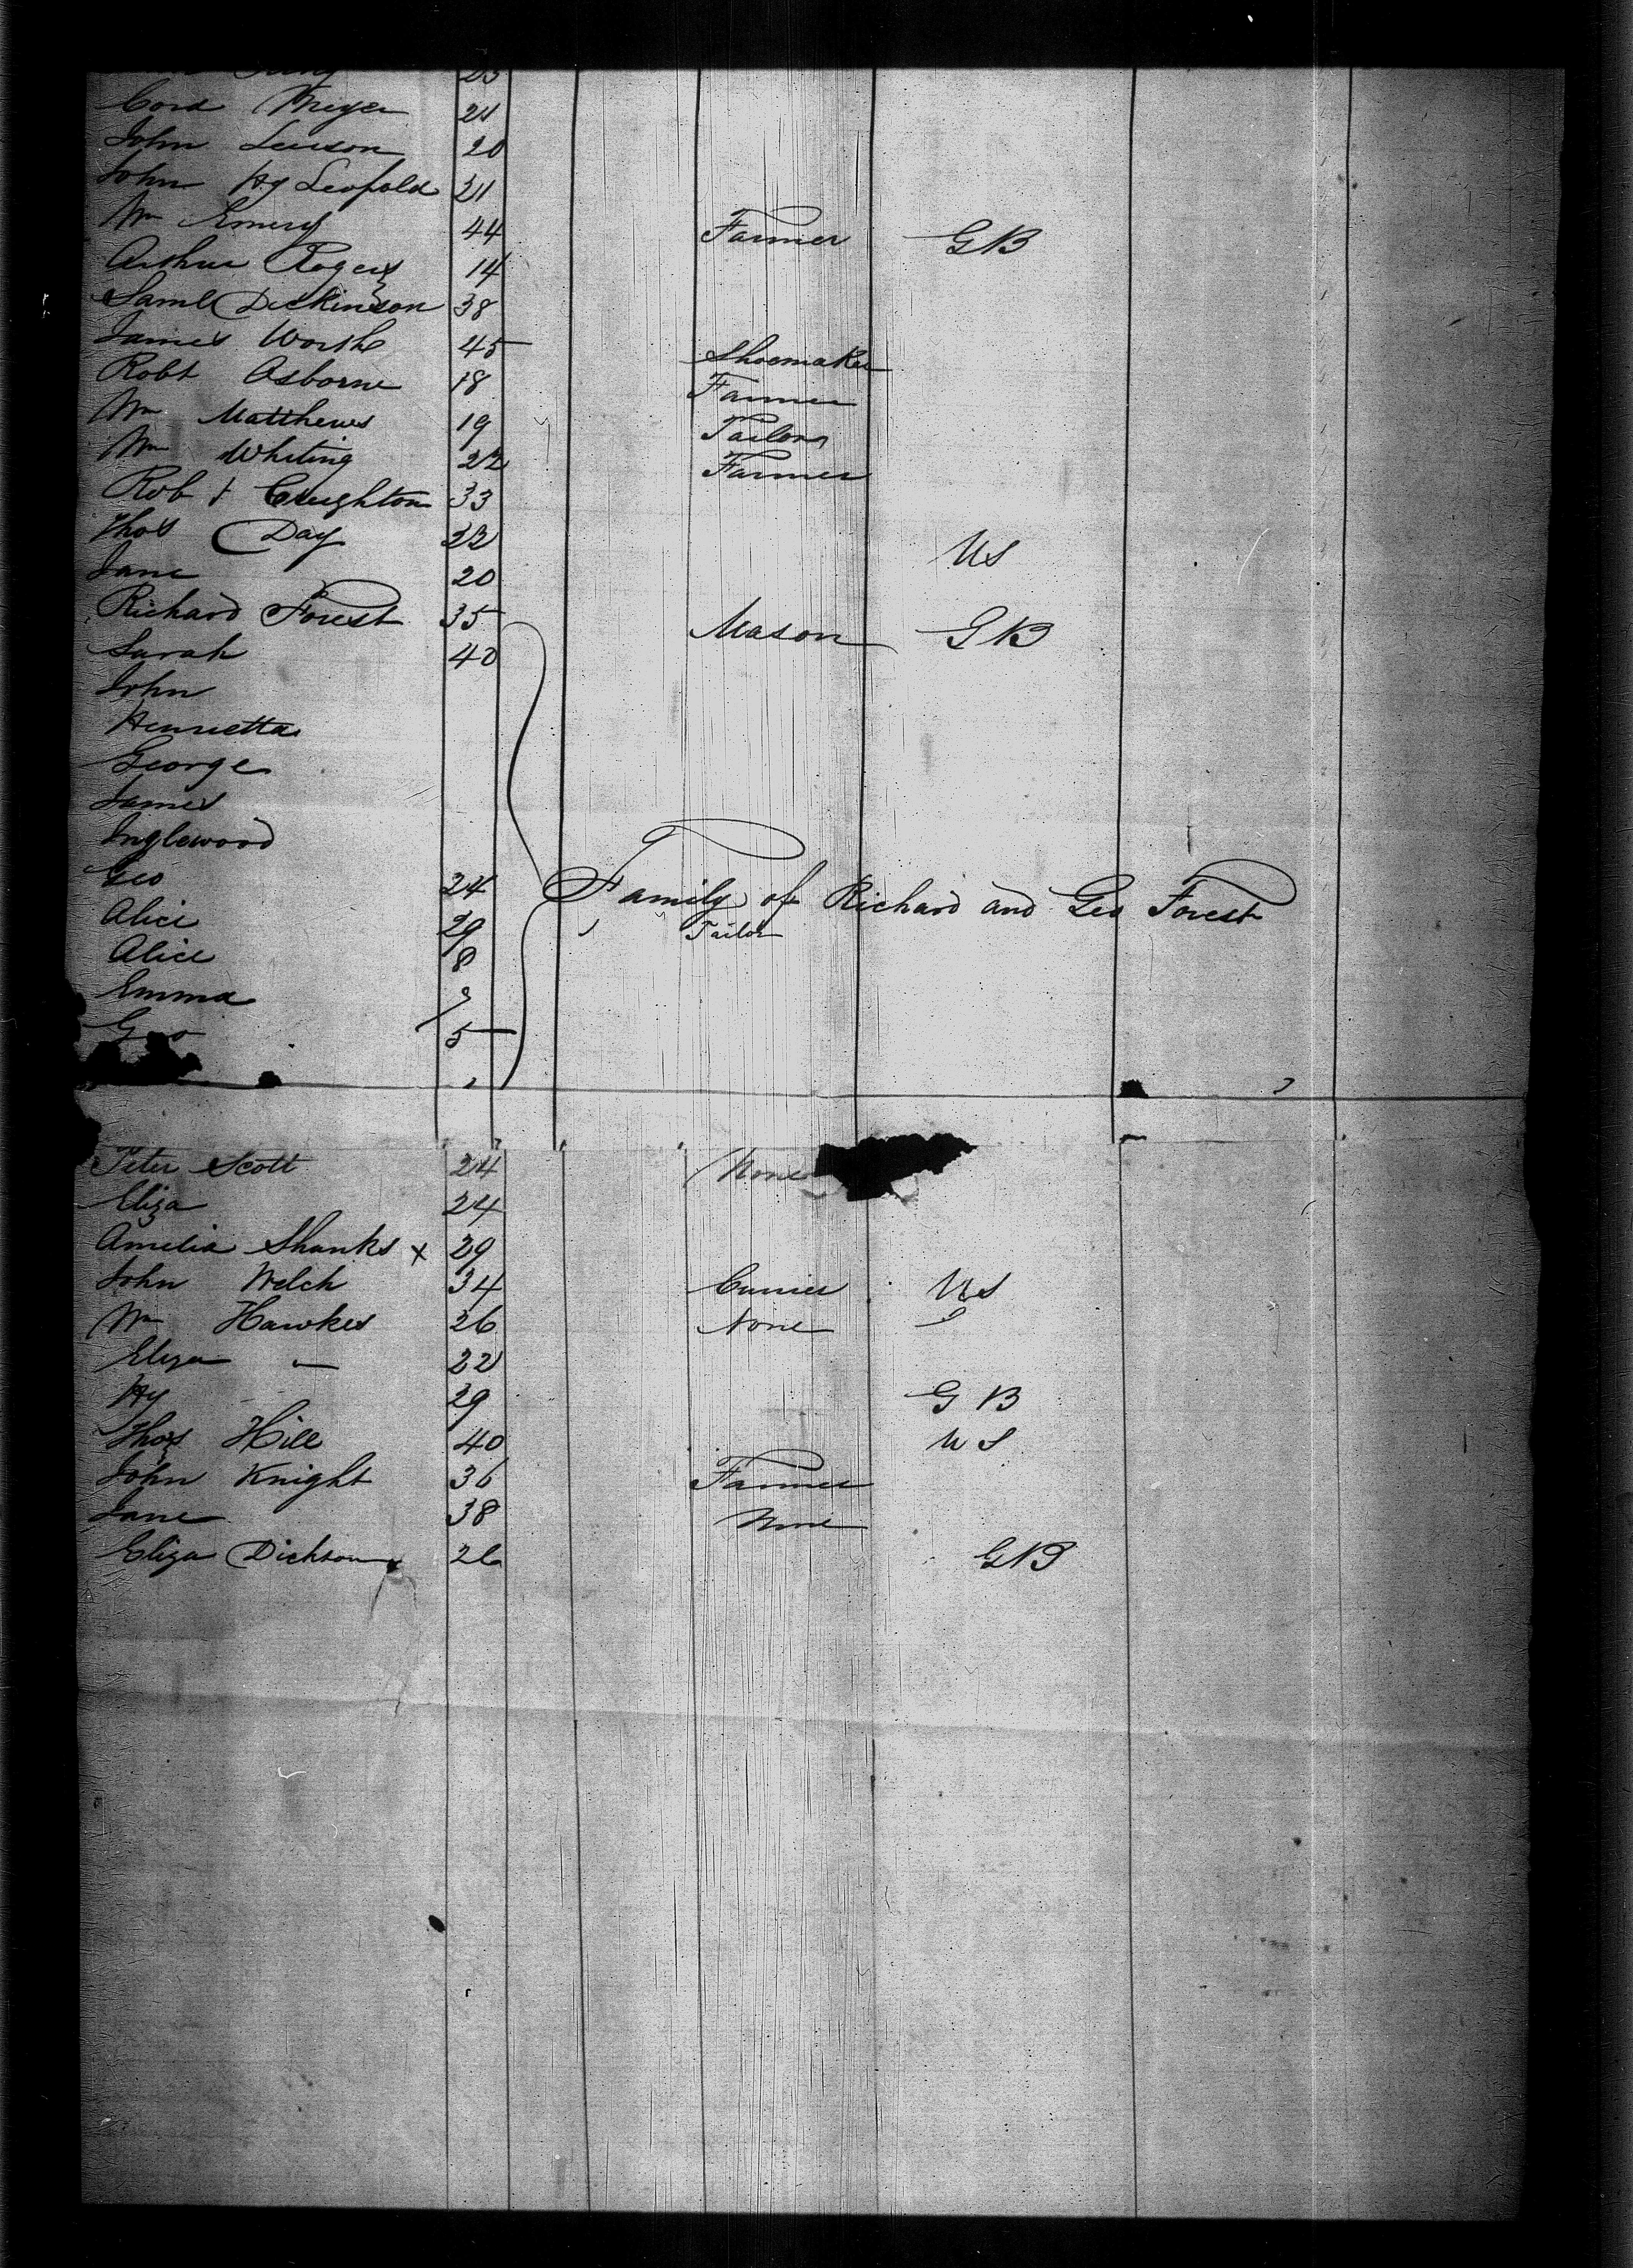 23
Cord Meyer 21
John Leeson 20
John Hy Leopold 21
Wm Emery 44 Farmer GB
Arthur Rogers 14
Saml Dickinson 38
James Worth 45 Shoemaker
Robt Osborne 18 Farmer
Wm Matthews 19 Tailor
Wm Whiting 22 Farmer
Robt Creighton 33
Thos Day 22 US
Jane 20
Richard Forest 35 Mason GB
Sarah 40
John
Henrietta
George
James
Inglewood
Geo 24 Family of Richard and Geo Forest
Alice 29 Tailor
Alice 8
Emma
Geo 5
Peter Scott 24 None
Eliza 24
Amelia Shanks x 29
John Welch 34 Currier US
Wm Hawkes 26 None
Eliza " 22
Hy 29 GB
Thos Hill 40 US
John Knight 36 Farmer
Jane 38 None
Eliza Dickson x 26 GB